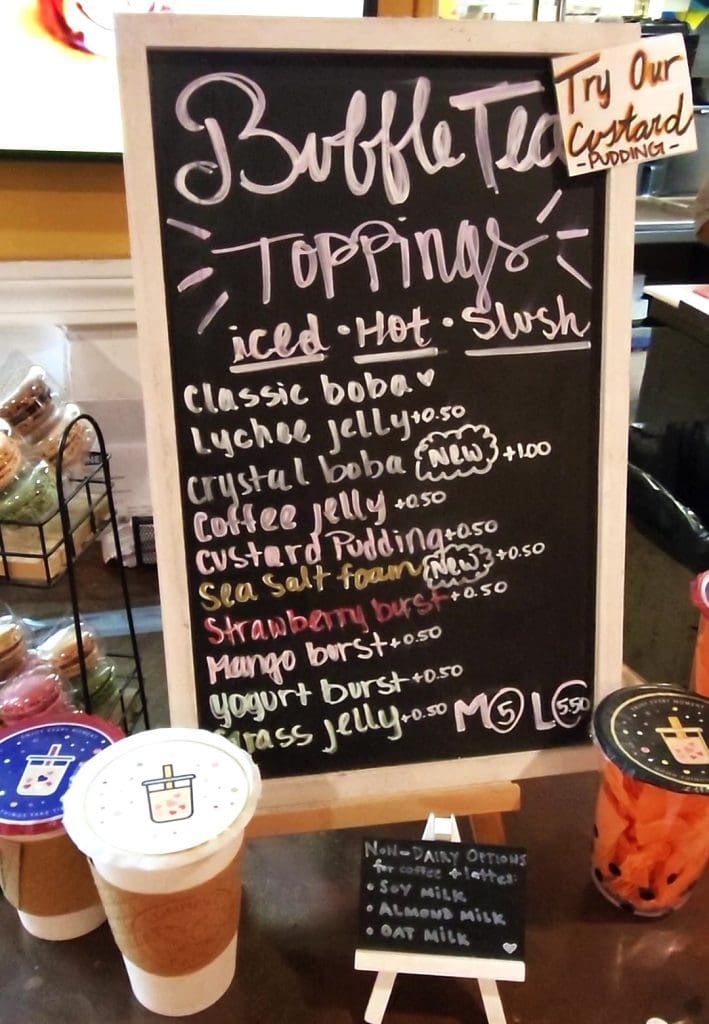 Bubble Tea
Toppings
iced • Hot • Slush
Classic boba ♥
Lychee jelly +0.50
Crystal boba New +1.00
Coffee jelly +0.50
Custard Pudding +0.50
Sea Salt foam New +0.50
Strawberry burst +0.50
Mango burst +0.50
Yogurt burst +0.50
Grass jelly +0.50
M 5 L 5.50
Try Our
Custard
- PUDDING -
NON-DAIRY OPTIONS
for coffee + lattes:
• SOY MILK
• ALMOND MILK
• OAT MILK
ENJOY EVERY MOMENT
THINGS TAKE
ENJOY EVERY MOMENT